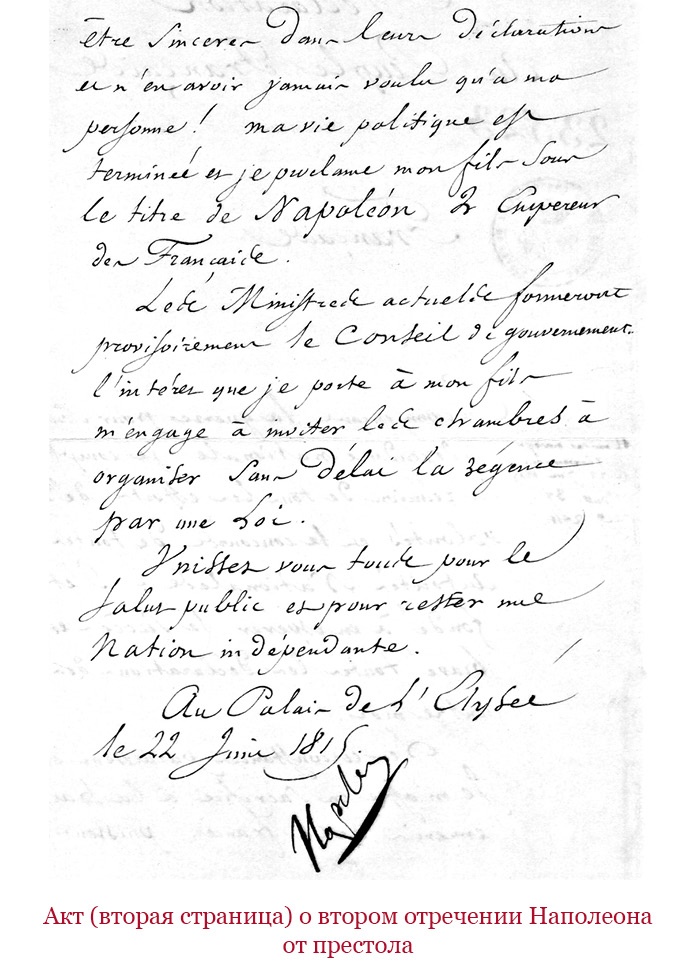 être sinceres dans leurs déclarations
et n'en avoir jamais voulu qu'a ma
personne! ma vie politique est
terminée et je proclame mon fils sous
le titre de Napoléon 2 Empereur
des Français.
Les Ministres actuels formeront
provisoirement le Conseil de gouvernement.
l'intéret que je porte à mon fils
m'engage à inviter les chambres à
organiser sans délai la régence
par une Loi.
Unissez vous tous pour le
salut public et pour rester une
Nation indépendante.
Au Palais de l'Elysée
le 22 Juin 1815.
Napoleon
Акт (вторая страница) о втором отречении Наполеона
от престола